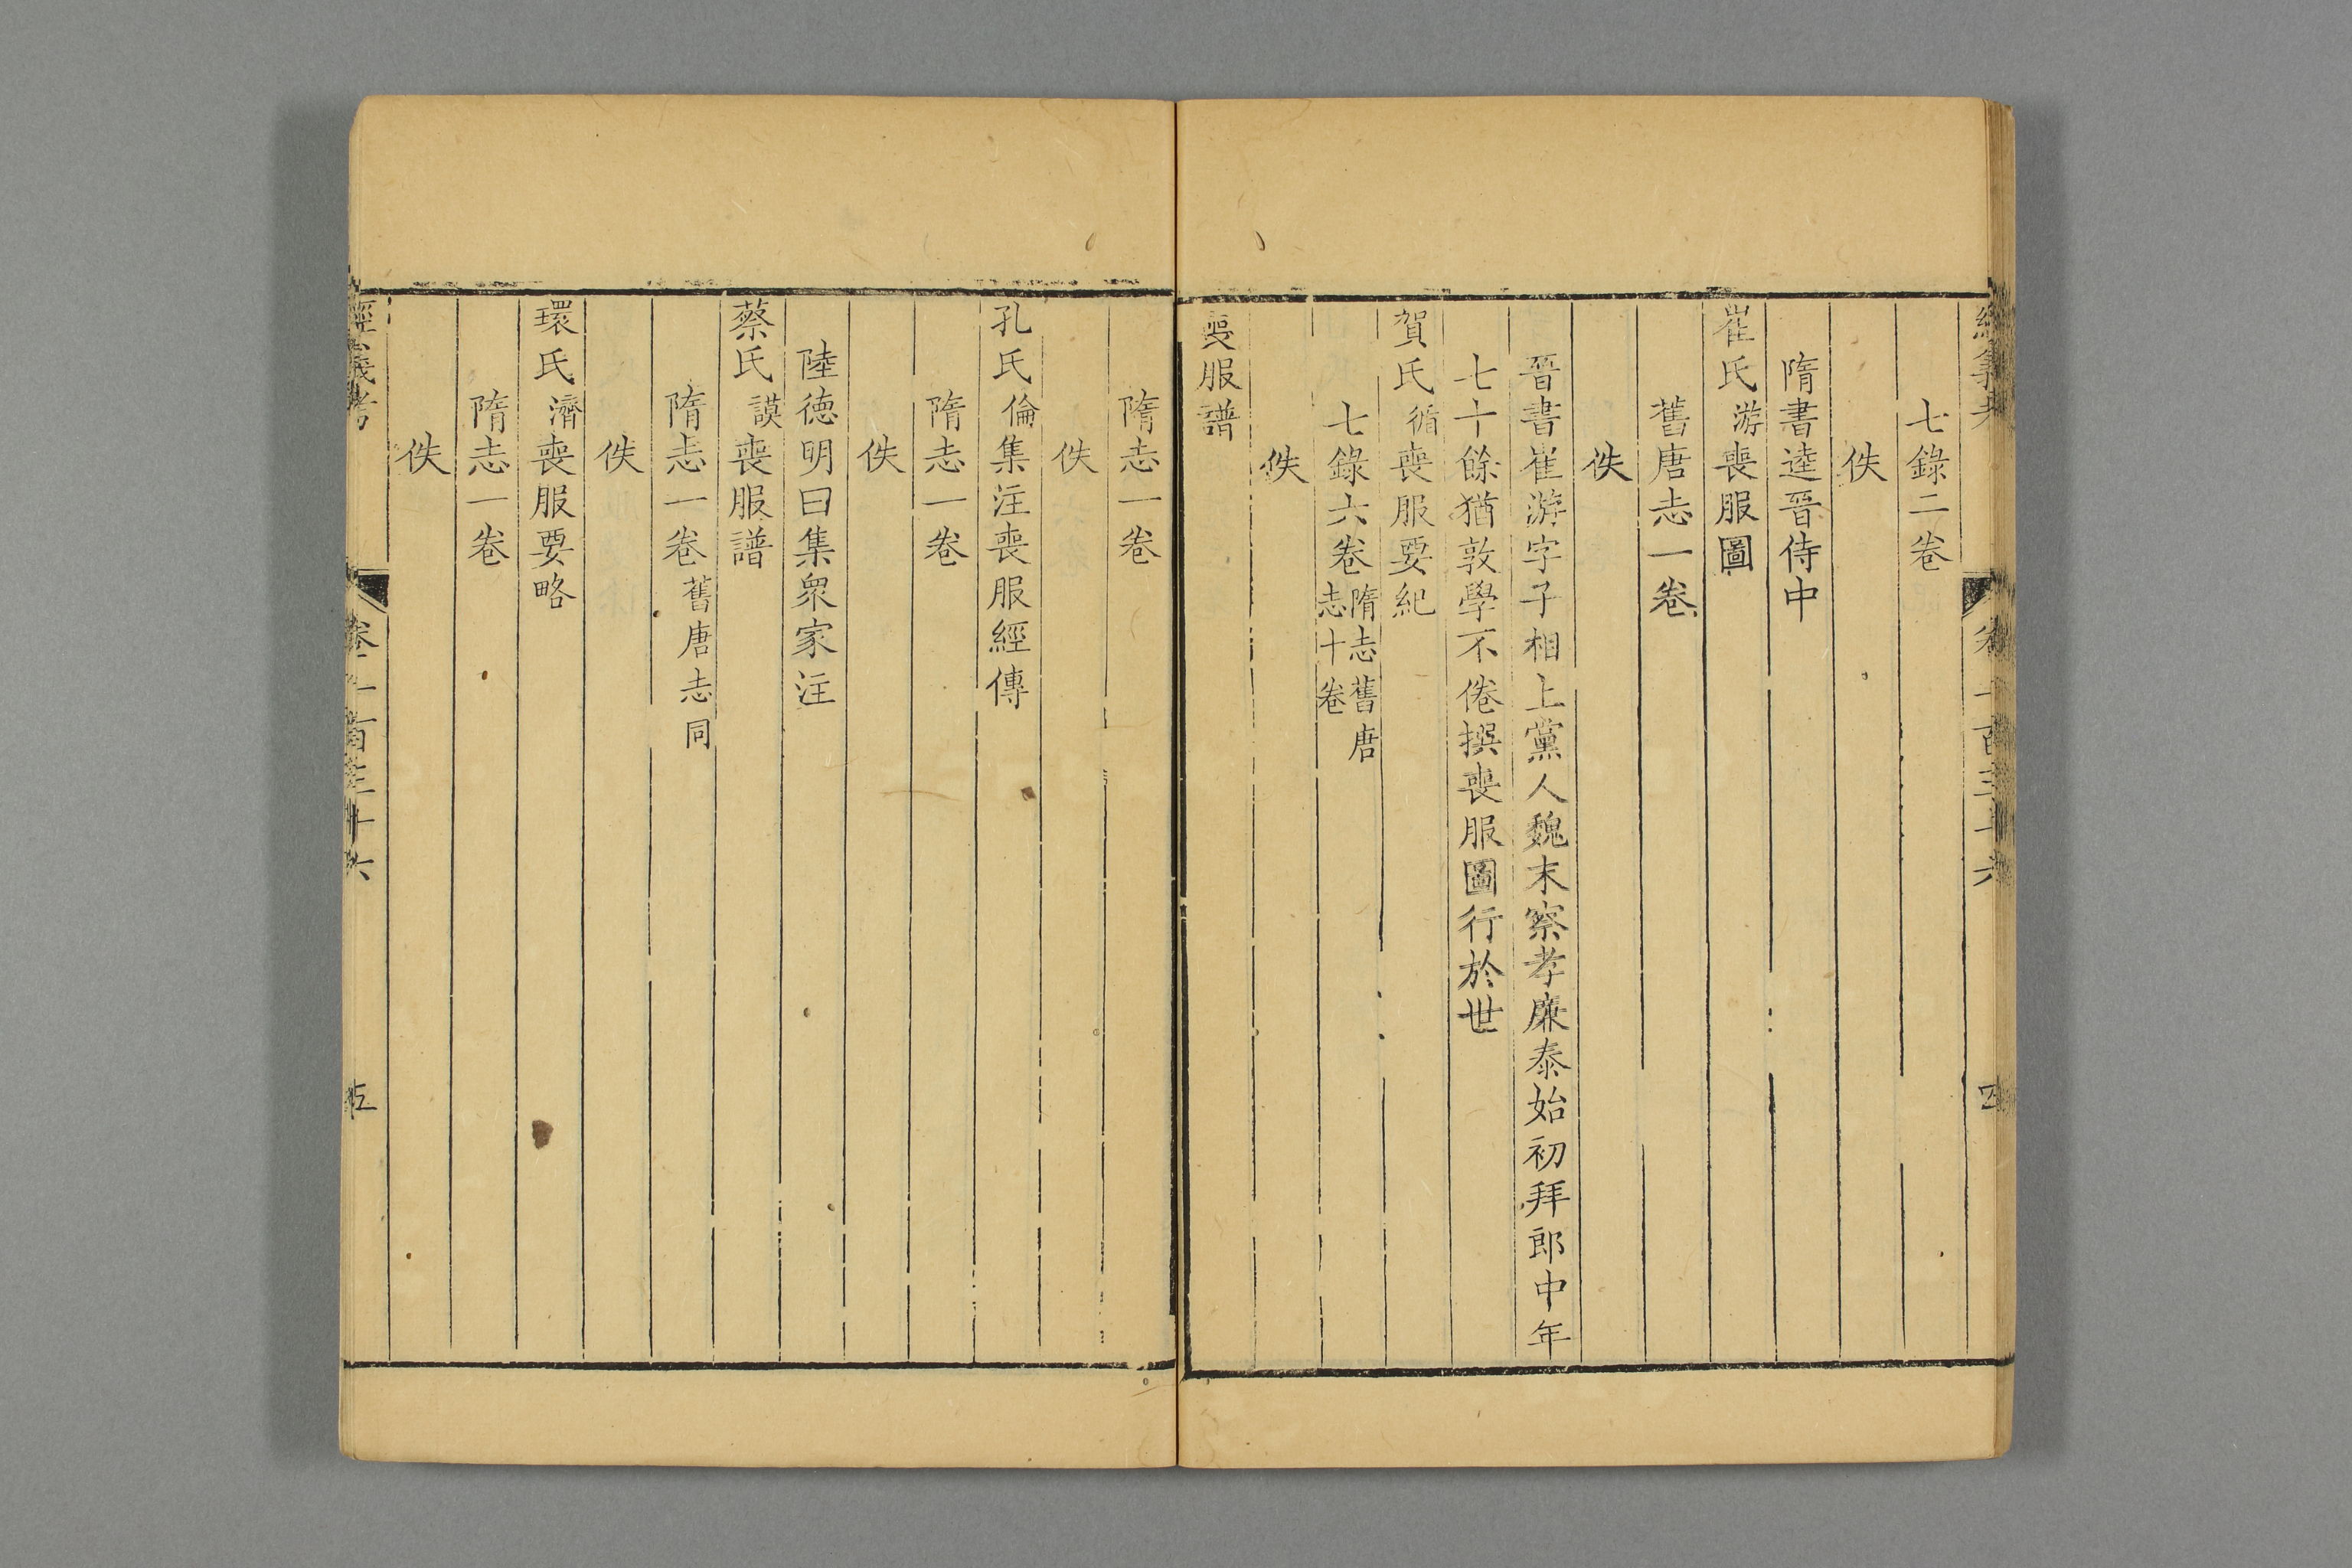 七錄二卷
佚
隋書逵晉侍中
崔氏游喪服圖
舊唐志一卷
佚
晉書崔游字子相上黨人魏末察孝廉泰始初拜郎中年
七十餘猶敦學不倦撰喪服圖行於世
賀氏循喪服要紀
七錄六卷隋志舊唐志十卷
佚
喪服譜
隋志一卷
佚
孔氏倫集注喪服經傳
隋志一卷
佚
陸德明曰集衆家注
蔡氏謨喪服譜
隋志一卷舊唐志同
佚
環氏濟喪服要略
隋志一卷
佚
經義考
卷一百三十六
五